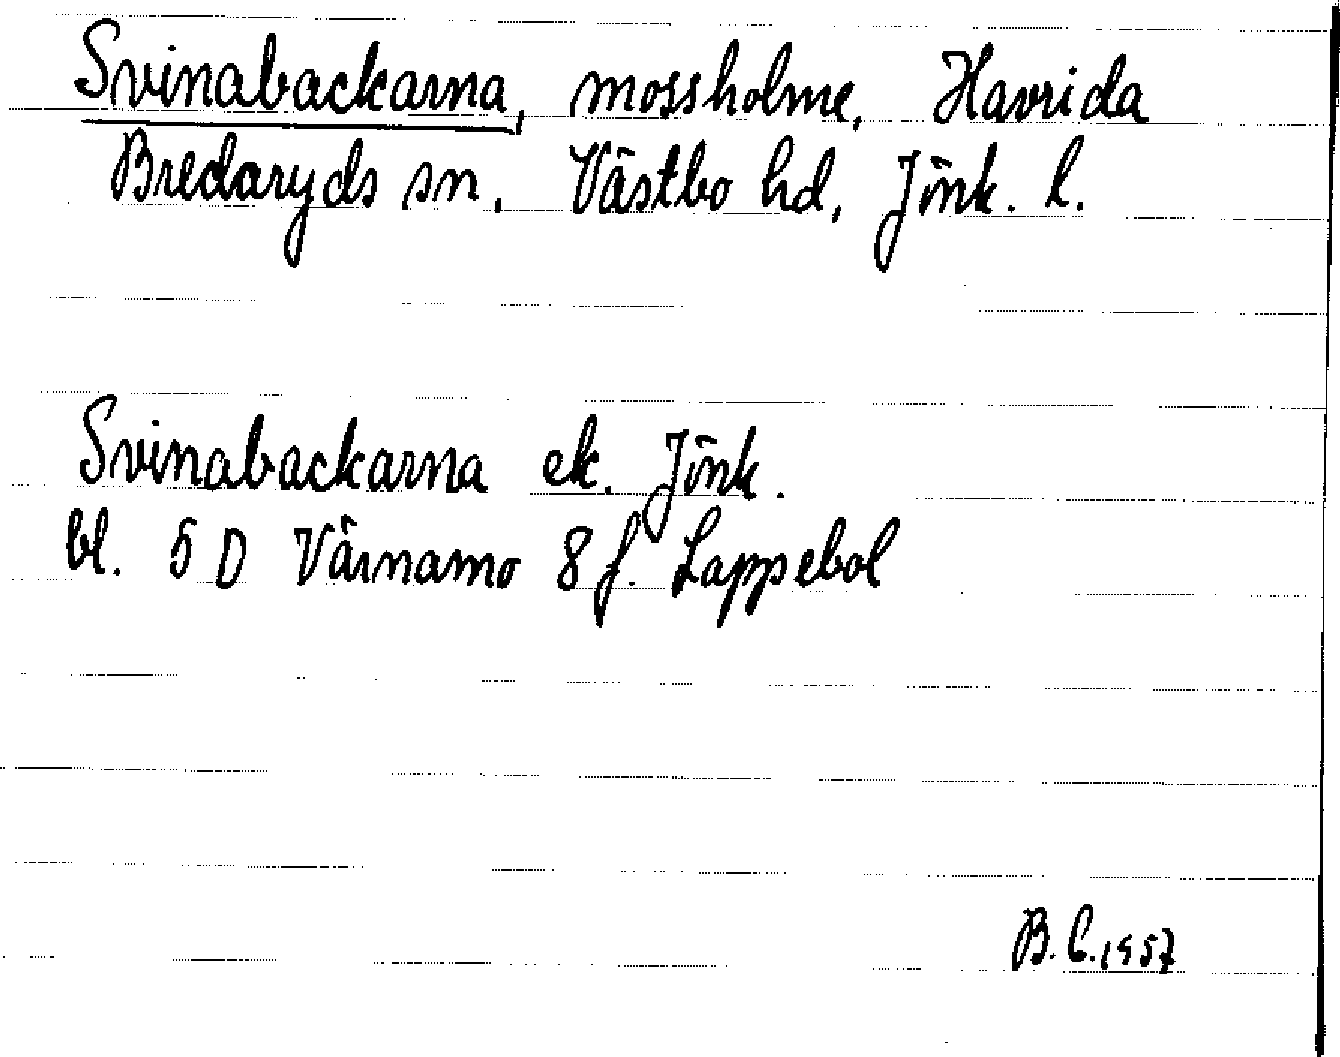 Svinabackarna, mossholme, Havrida
Bredaryds sn, Västbo hd, Jönk. l.
Svinabackarna ek. Jönk.
bl. 5 D Värnamo 8 f. Lappebol
B. C. 1957